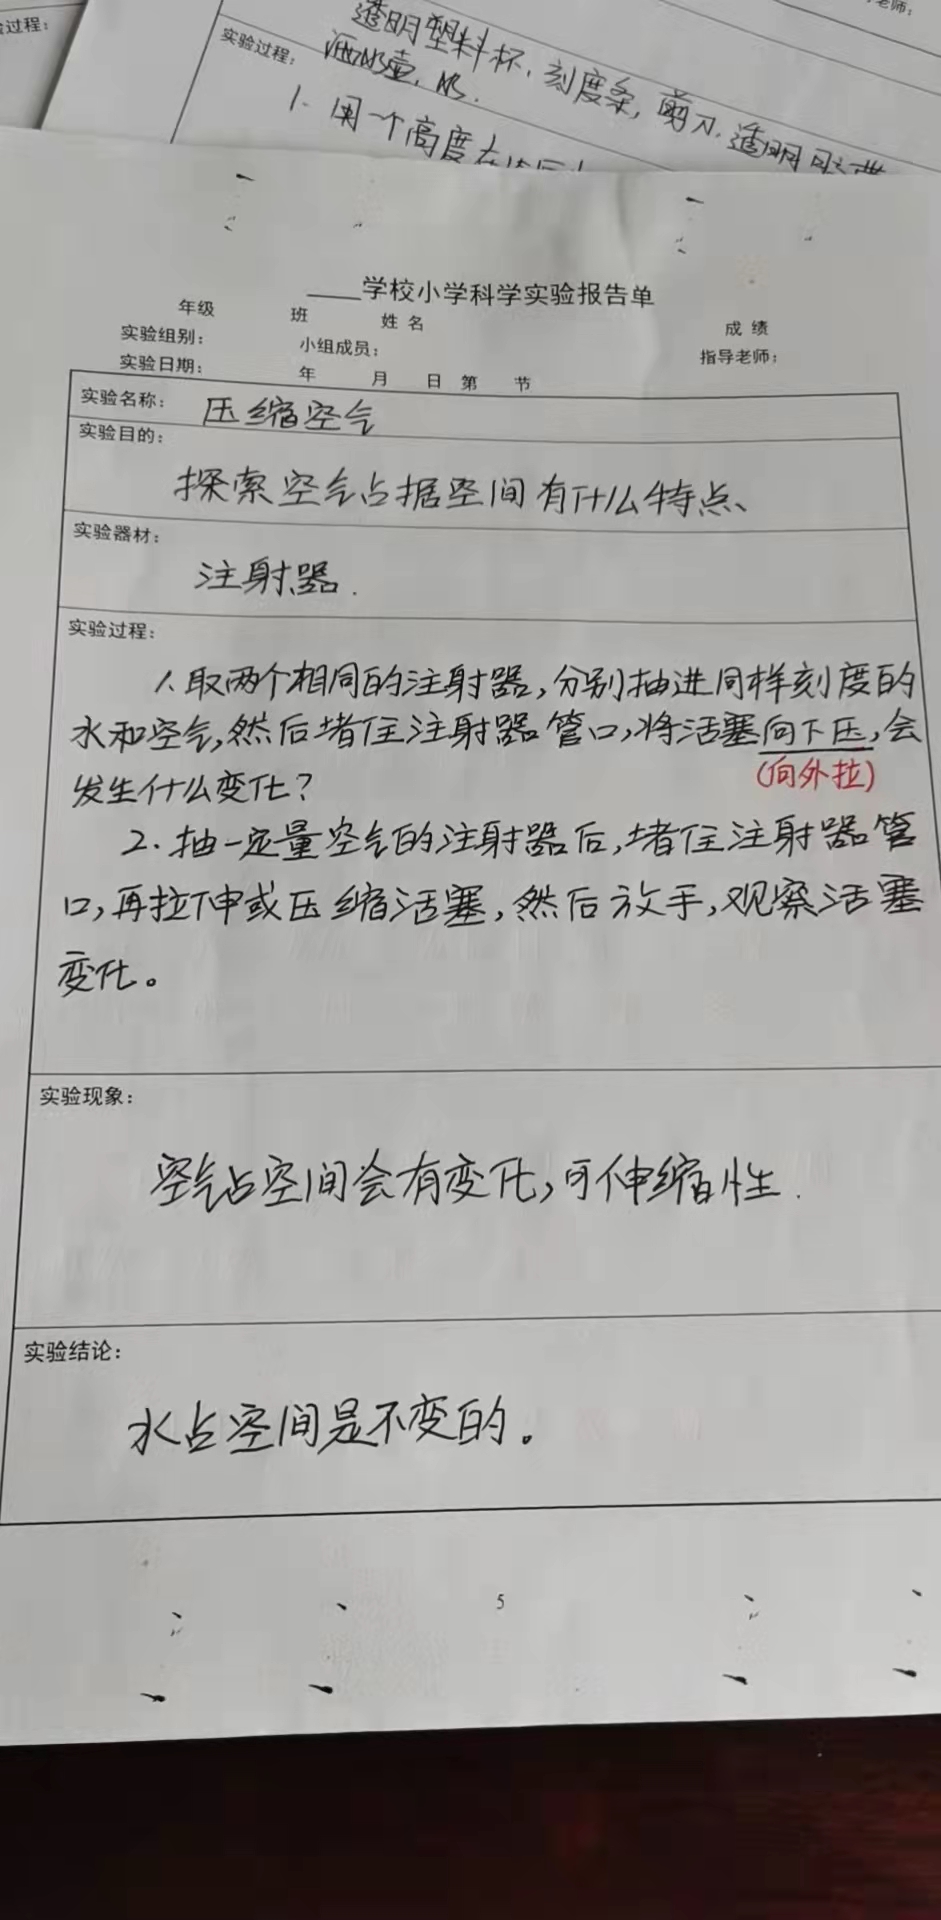 老师:
验过程:
透明塑料杯,刻度条,剪刀,透明
实验过程:
1. 用一个高度
____学校小学科学实验报告单
年级 班 姓名 成绩
实验组别: 小组成员: 指导老师:
实验日期: 年 月 日 第 节
实验名称: 压缩空气
实验目的:
探索空气占据空间有什么特点、
实验器材:
注射器.
实验过程:
1.取两个相同的注射器,分别抽进同样刻度的
水和空气,然后堵住注射器管口,将活塞向下压,会
(向外拉)
发生什么变化?
2.抽一定量空气的注射器后,堵住注射器管
口,再拉伸或压缩活塞,然后放手,观察活塞
变化。
实验现象:
空气占空间会有变化,可伸缩性.
实验结论:
水占空间是不变的。
5